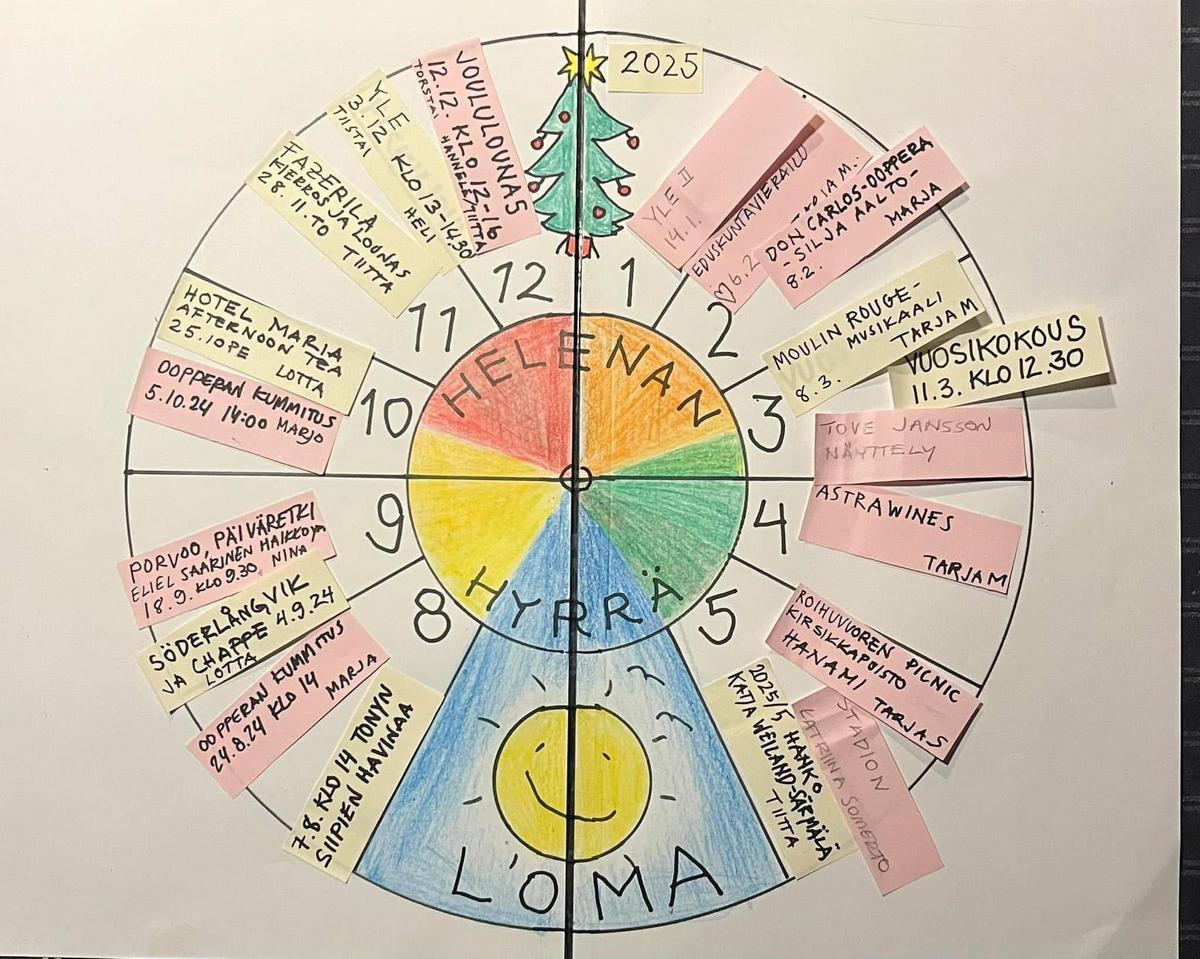 2025
YLE II
14.1.
EDUSKUNTAVIERAILU
♡ 6.2
DON CARLOS-OOPPERA
-SILJA AALTO-
MARJA
8.2.
MOULIN ROUGE-
MUSIKAALI
TARJA M
8.3.
VUOSIKOKOUS
11.3. KLO 12.30
TOVE JANSSON
NÄYTTELY
ASTRAWINES
TARJA M
ROIHUVUOREN PICNIC
KIRSIKKAPUISTO
HANAMI TARJAS
STADION
KATRIINA SOMERTO
2025/5 HANKO
KATJA WEILAND-SÄRMÄLÄ
TIITTA
LOMA
7.8. KLO 14 TONYN
SIIPIEN HAVINAA
OOPPERAN KUMMITUS
24.8.24 KLO 14
MARJA
SÖDERLÅNGVIK
JA CHAPPE 4.9.24
LOTTA
PORVOO, PÄIVÄRETKI
ELIEL SAARINEN HAIKKOON
18.9. KLO 9.30 NINA
OOPPERAN KUMMITUS
5.10.24 14:00 MARJO
HOTEL MARIA
AFTERNOON TEA
25.10 PE
LOTTA
FAZERILA
KIERROS JA LOUNAS
28.11. TO
TIITTA
YLE
3.12 KLO 13-14.30
TIISTAI
HELI
JOULULOUNAS
12.12. KLO 12-16
TORSTAI HANNELE/TIITTA
HELENAN
HYRRÄ
1
2
3
4
5
8
9
10
11
12